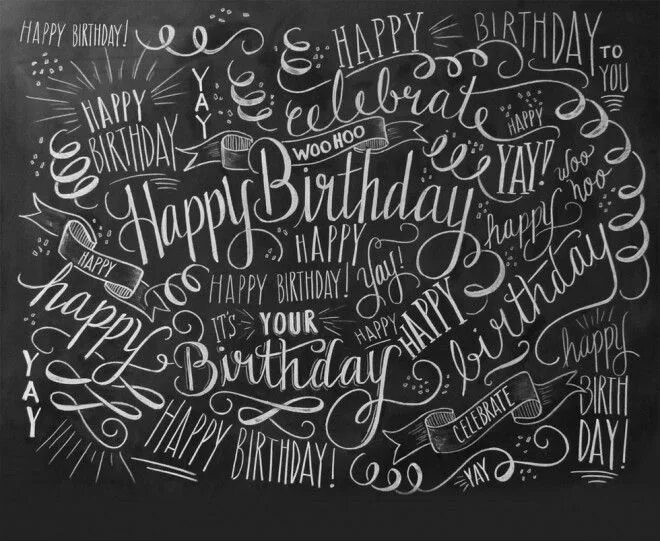 HAPPY BIRTHDAY!
HAPPY BIRTHDAY
TO
YOU
YAY
celebrate
HAPPY
BIRTHDAY
HAPPY
WOO HOO
YAY!
woo
hoo
Happy Birthday
happy
HAPPY
HAPPY
HAPPY BIRTHDAY!
Yay!
birthday
happy
IT'S YOUR
HAPPY
HAPPY
Birthday
happy
YAY
BIRTH
DAY!
CELEBRATE
HAPPY BIRTHDAY!
YAY